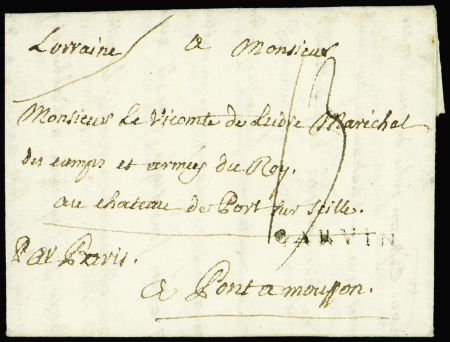 Lorraine a Monsieur
13
Monsieur Le Vicomte de Ludre Maréchal
du camps et armées du Roy.
au chateau de Port sur seille.
CARVIN
Par Paris.
a Pont a mousson.